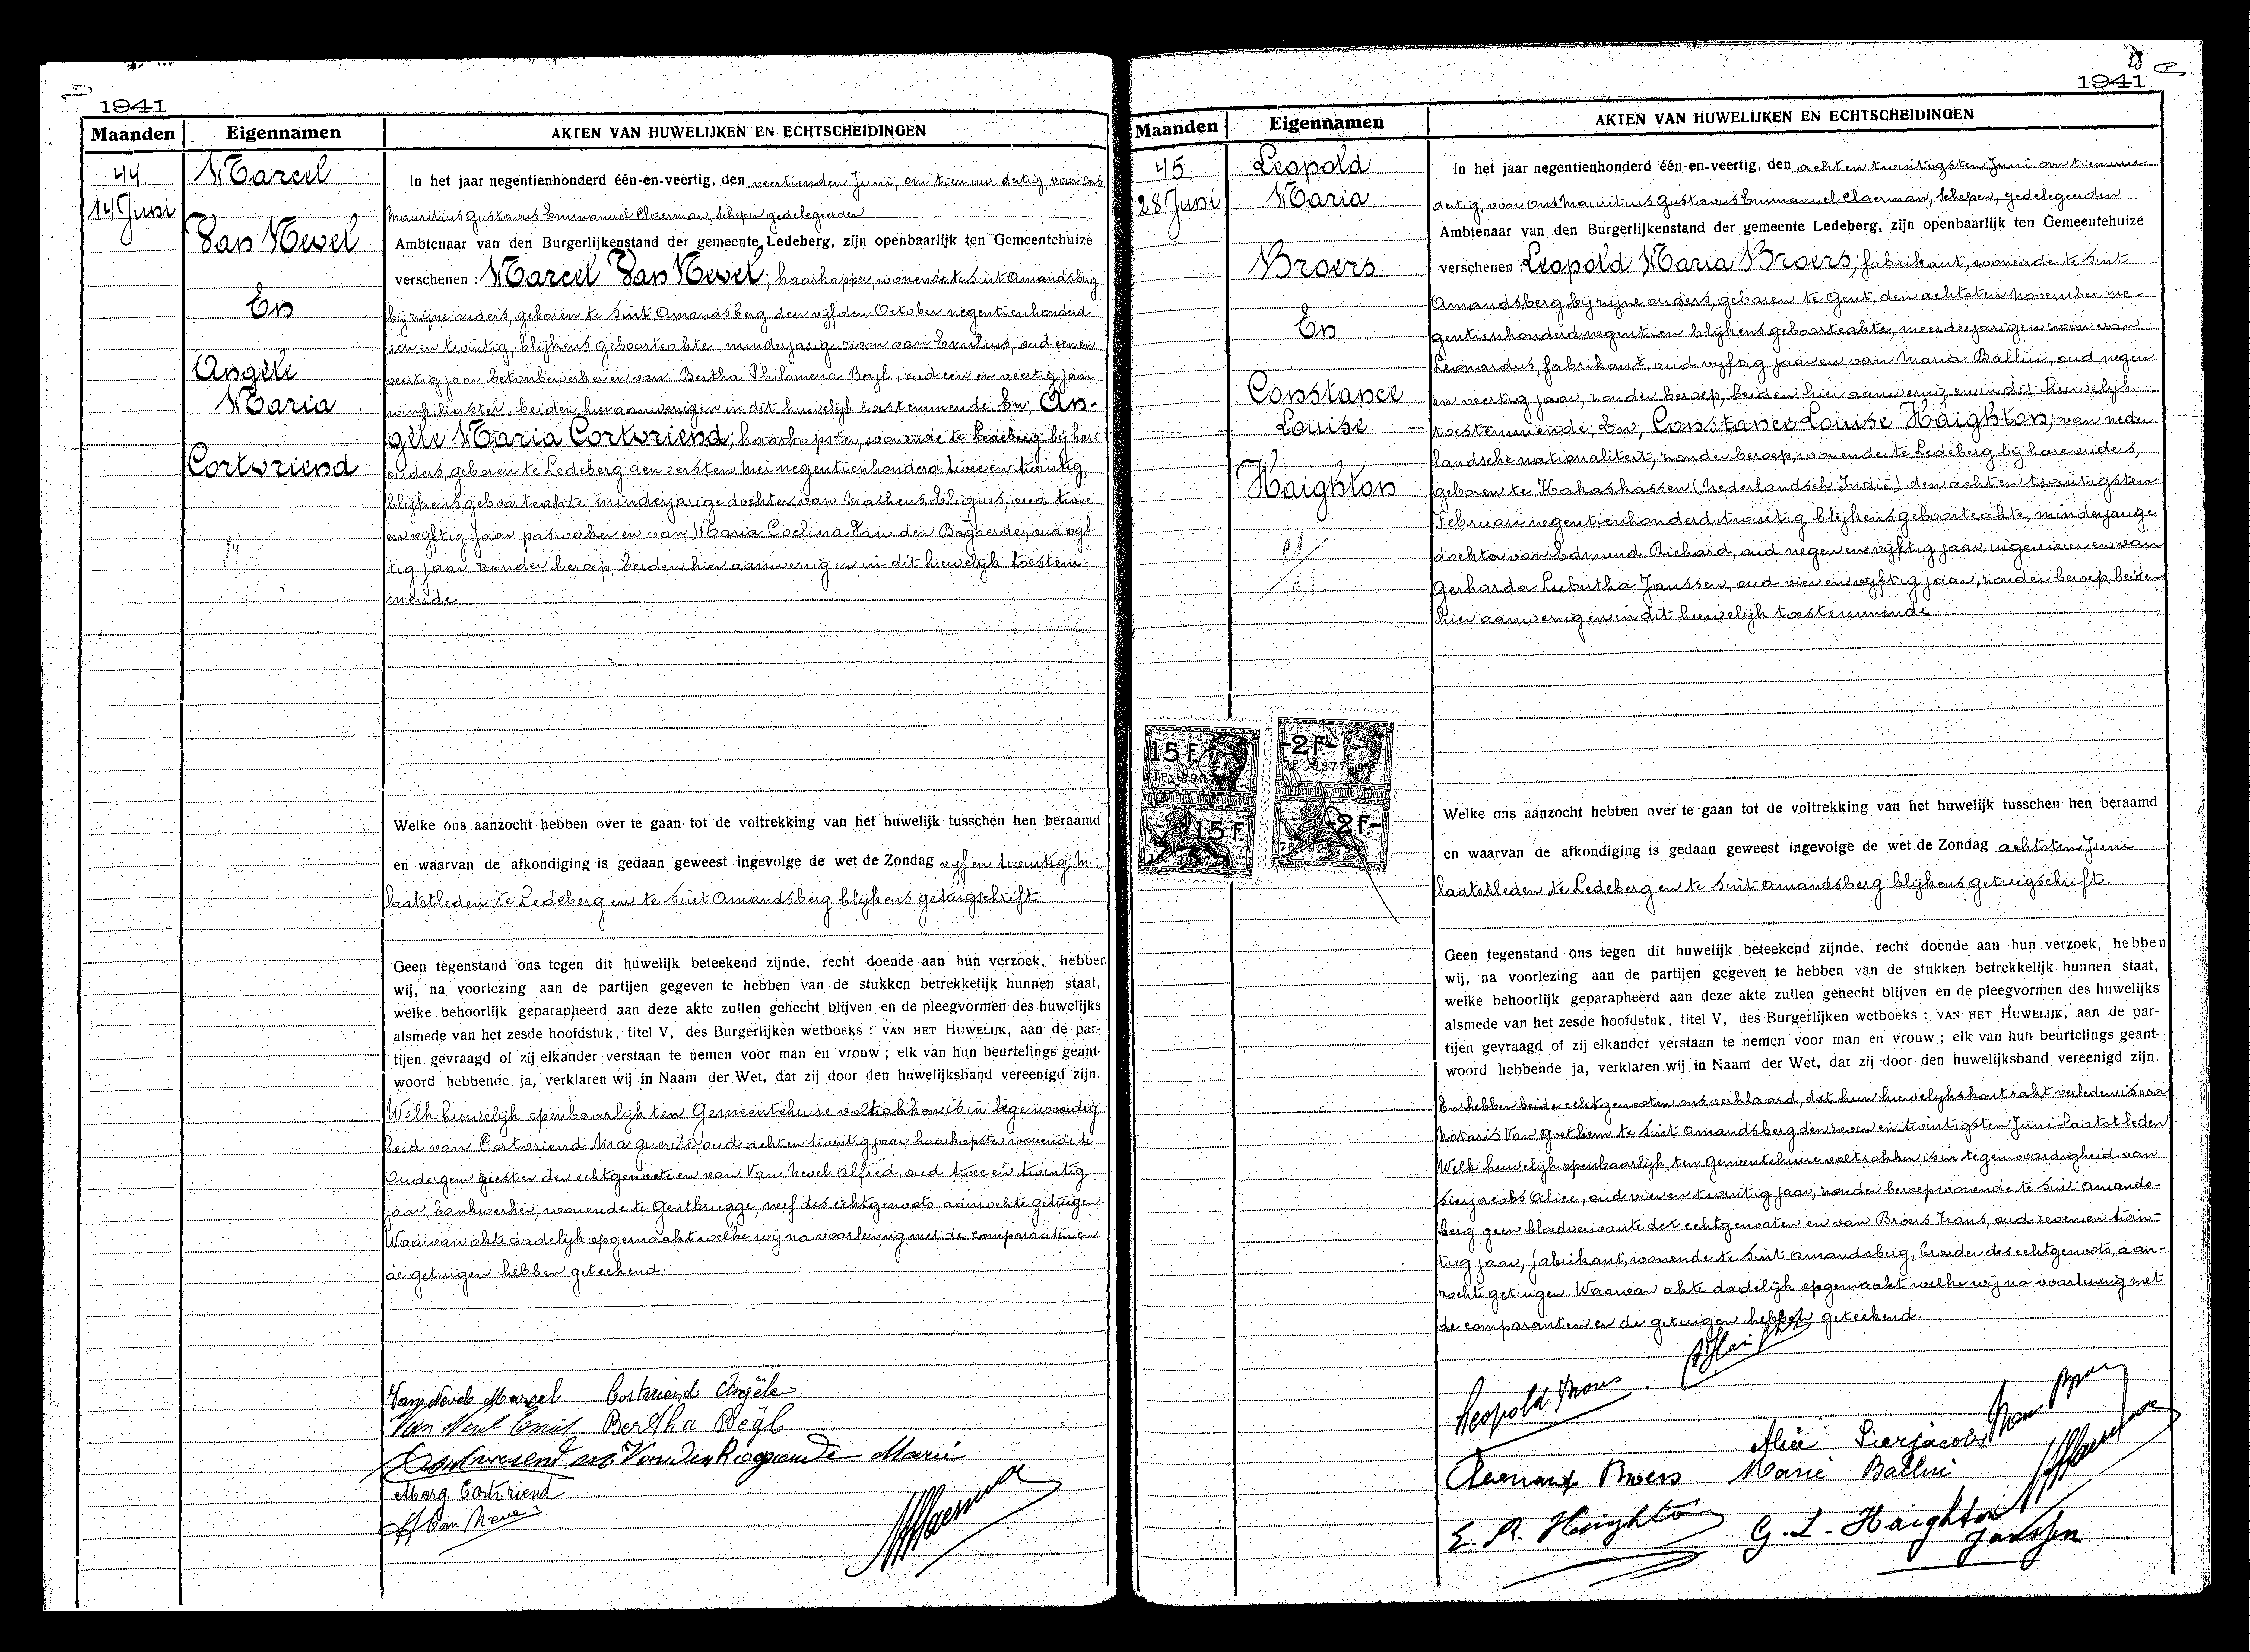 1941
Maanden Eigennamen AKTEN VAN HUWELIJKEN EN ECHTSCHEIDINGEN
44.
14 Juni
Marcel
Van Nevel
En
Angèle
Maria
Cortvriend
In het jaar negentienhonderd één-en-veertig, den veertienden Juni, om tien uur dertig, voor ons
Mauritius Gustavus Emmanuel Claerman, Schepen gedelegeerden
Ambtenaar van den Burgerlijkenstand der gemeente Ledeberg, zijn openbaarlijk ten Gemeentehuize
verschenen : Marcel Van Nevel; haarkapper, wonende te Sint Amandsberg
bij zijne ouders, geboren te Sint Amandsberg den vijfden October negentienhonderd
een en twintig, blijkens geboorteakte minderjarige zoon van Emilius, oud een en
veertig jaar, betonbewerker en van Bertha Philomena Beyl, oud een en veertig jaar
winkelierster, beiden hier aanwezig en in dit huwelijk toestemmende: En, An-
gèle Maria Cortvriend; haarkapster, wonende te Ledeberg bij hare
ouders, geboren te Ledeberg den eersten Mei negentienhonderd twee en twintig,
blijkens geboorteakte, minderjarige dochter van Matheus Eligius, oud twee
en vijftig jaar paswerker en van Maria Coelina Van den Bogaerde, oud vijf-
tig jaar zonder beroep, beiden hier aanwezig en in dit huwelijk toestem-
mende
Welke ons aanzocht hebben over te gaan tot de voltrekking van het huwelijk tusschen hen beraamd
en waarvan de afkondiging is gedaan geweest ingevolge de wet de Zondag vijf en twintig Mei
laatstleden te Ledeberg en te Sint Amandsberg blijkens getuigschrift.
Geen tegenstand ons tegen dit huwelijk beteekend zijnde, recht doende aan hun verzoek, hebben
wij, na voorlezing aan de partijen gegeven te hebben van de stukken betrekkelijk hunnen staat,
welke behoorlijk geparapheerd aan deze akte zullen gehecht blijven en de pleegvormen des huwelijks
alsmede van het zesde hoofdstuk, titel V, des Burgerlijken wetboeks : VAN HET HUWELIJK, aan de par-
tijen gevraagd of zij elkander verstaan te nemen voor man en vrouw ; elk van hun beurtelings geant-
woord hebbende ja, verklaren wij in Naam der Wet, dat zij door den huwelijksband vereenigd zijn.
Welk huwelijk openbaarlijk ten Gemeentehuize voltrokken is in tegenwoordig
heid van Cortvriend Marguerite, oud acht en twintig jaar haarkapster wonende te
Oudergem zuster der echtgenoote en van Van Nevel Alfred, oud twee en twintig
jaar, bankwerker, wonende te Gentbrugge, neef des echtgenoots, aanzochte getuigen.
Waarvan akte dadelijk opgemaakt welke wij na voorlezing met de comparanten en
de getuigen hebben geteekend.
Van Nevel Marcel Cortvriend Angèle
Van Nevel Emiel Bertha Beyl
Cortvriend M. Van Den Bogaerde Marie
Marg. Cortvriend
A Van Nevel
1941
Maanden Eigennamen AKTEN VAN HUWELIJKEN EN ECHTSCHEIDINGEN
45
28 Juni
Leopold
Maria
Broers
En
Constance
Louise
Haighton
15 F. -2 F.-
15 F. -2 F.-
In het jaar negentienhonderd één-en-veertig, den acht en twintigsten Juni, om tien uur
dertig, voor Ons Mauritius Gustavus Emmanuel Claerman, Schepen, gedelegeerden
Ambtenaar van den Burgerlijkenstand der gemeente Ledeberg, zijn openbaarlijk ten Gemeentehuize
verschenen : Leopold Maria Broers; fabrikant, wonende te Sint
Amandsberg bij zijne ouders, geboren te Gent, den achtsten November ne-
gentienhonderd negentien blijkens geboorteakte, meerderjarigen zoon van
Leonardus, fabrikant, oud vijftig jaar en van Maria Ballin, oud negen
en veertig jaar, zonder beroep, beiden hier aanwezig en in dit huwelijk
toestemmende; En; Constance Louise Haighton; van neder
landsche nationaliteit, zonder beroep, wonende te Ledeberg bij hare ouders,
geboren te Kakaskassen (Nederlandsch Indië) den acht en twintigsten
Februari negentienhonderd twintig blijkens geboorteakte, minderjarige
dochter van Edmund Richard, oud negen en vijftig jaar, ingenieur en van
Gerharda Lubertha Janssen, oud vier en vijftig jaar, zonder beroep, beiden
hier aanwezig en in dit huwelijk toestemmende
Welke ons aanzocht hebben over te gaan tot de voltrekking van het huwelijk tusschen hen beraamd
en waarvan de afkondiging is gedaan geweest ingevolge de wet de Zondag achtsten Juni
laatstleden te Ledeberg en te Sint Amandsberg blijkens getuigschrift.
Geen tegenstand ons tegen dit huwelijk beteekend zijnde, recht doende aan hun verzoek, hebben
wij, na voorlezing aan de partijen gegeven te hebben van de stukken betrekkelijk hunnen staat,
welke behoorlijk geparapheerd aan deze akte zullen gehecht blijven en de pleegvormen des huwelijks
alsmede van het zesde hoofdstuk, titel V, des Burgerlijken wetboeks : VAN HET HUWELIJK, aan de par-
tijen gevraagd of zij elkander verstaan te nemen voor man en vrouw ; elk van hun beurtelings geant-
woord hebbende ja, verklaren wij in Naam der Wet, dat zij door den huwelijksband vereenigd zijn.
En hebben beide echtgenooten ons verklaard, dat hun huwelijkskontrakt verleden is voor
Notaris Van Goethem te Sint Amandsberg den zeven en twintigsten Juni laatstleden
Welk huwelijk openbaarlijk ten Gemeentehuize voltrokken is in tegenwoordigheid van
Sierjacobs Alice, oud vier en twintig jaar, zonder beroep wonende te Sint Amands-
berg geen bloedverwante der echtgenooten en van Broers Frans, oud zeven en twin-
tig jaar, fabrikant, wonende te Sint Amandsberg, broeder des echtgenoots, aan-
zochte getuigen. Waarvan akte dadelijk opgemaakt welke wij na voorlezing met
de comparanten en de getuigen hebben geteekend.
Leopold Broers
Alice Sierjacobs
Broers Marie Ballin
E. R. Haighton G. L. Haighton
Janssen